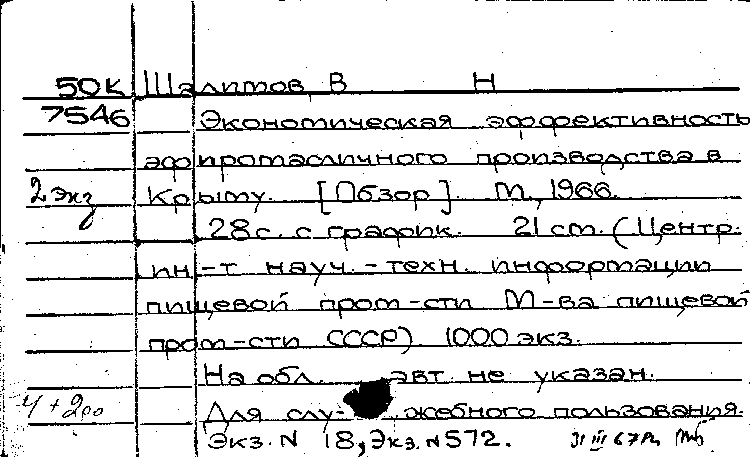 50К Шалимов, В Н
7546 Экономическая эффективность
эфиромасличного производства в
2 экз Крыму. [Обзор] М., 1966.
28 с. с график. 21 см. (Центр.
ин-т науч.-техн. информации
пищевой пром-сти М-ва пищевой
пром-сти СССР). 1000 экз.
На обл. авт. не указан.
Для слу- жебного пользования.
Экз. N 18, Экз. N 572. 31 III 67